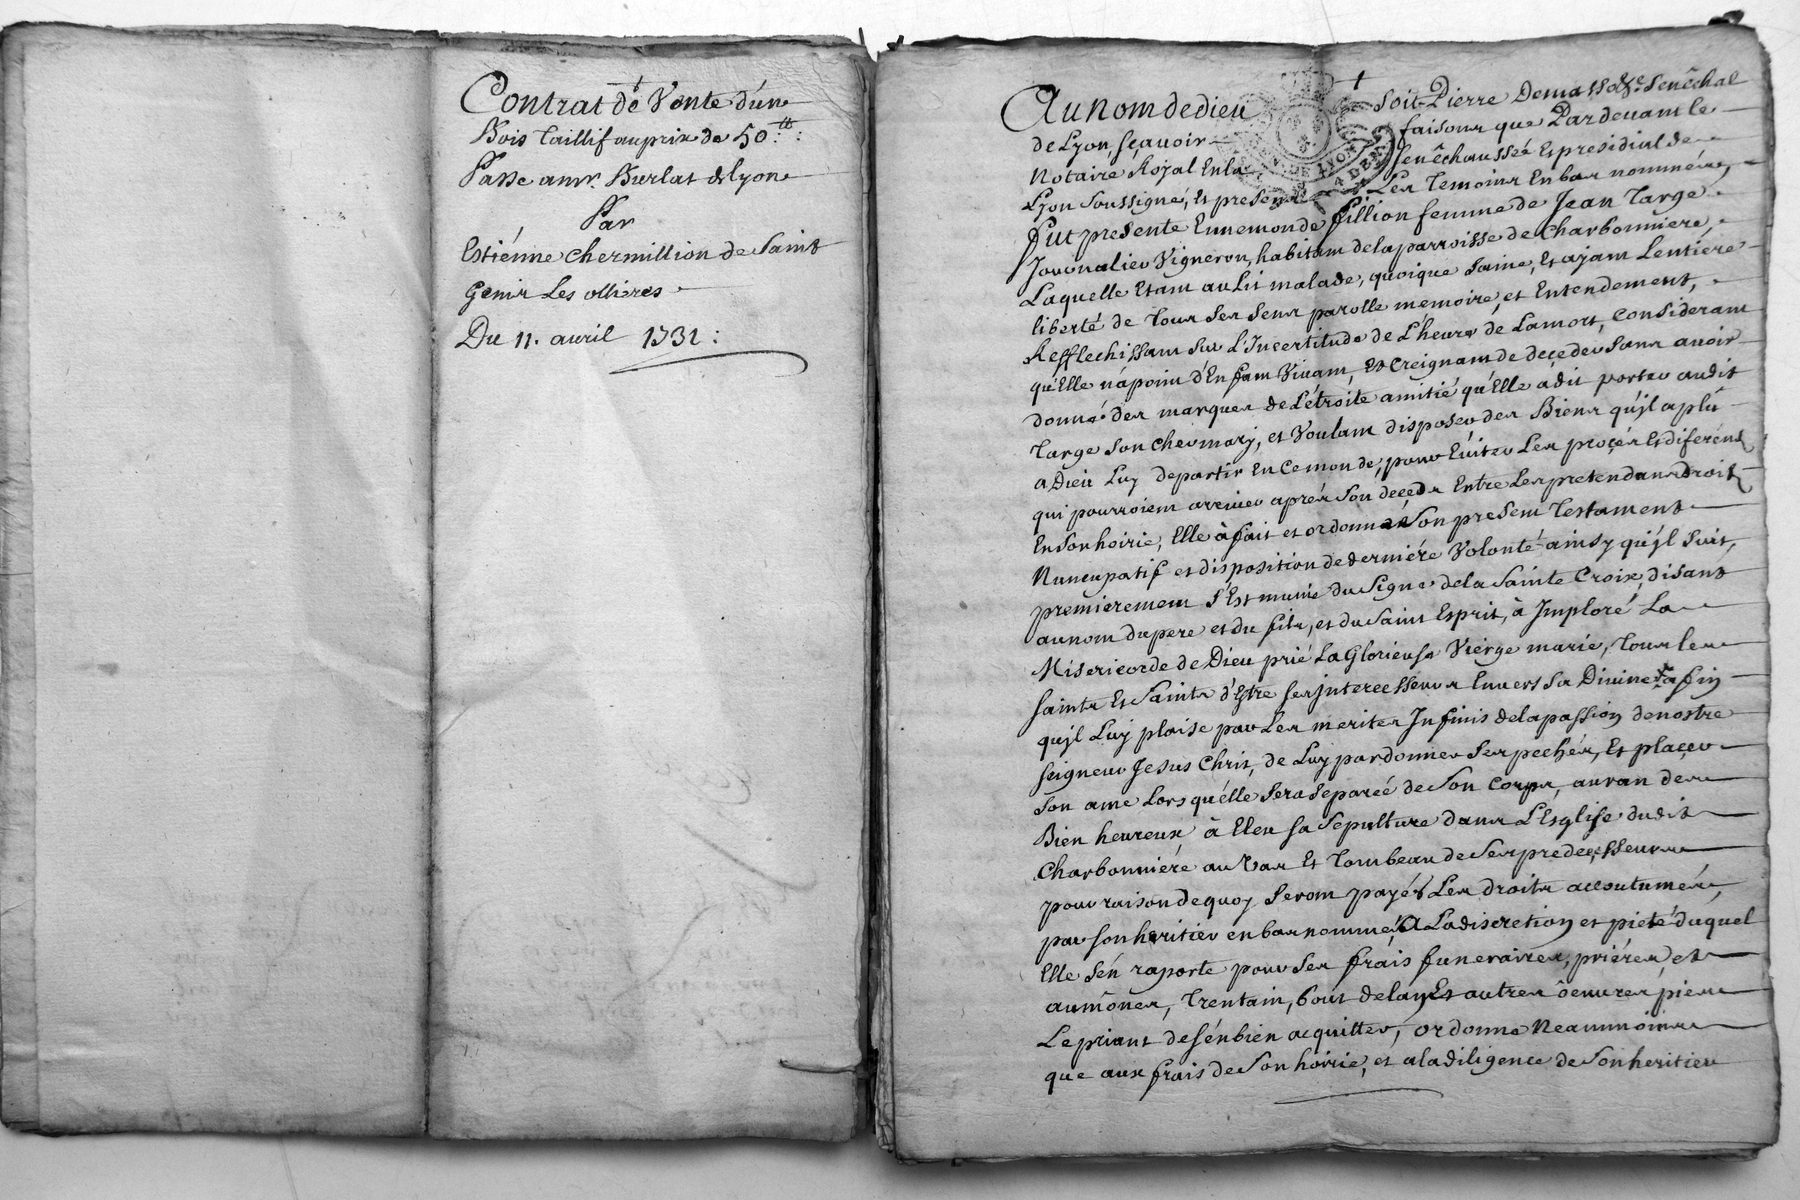 Contrat de Vente d'un
Bois Taillif au prix de 50 ᵗᵗ :
Passé a mr. Burlat de lyon
Par
Estiénne chermillion de Saint
Genis Les ollieres
Du 11. auril 1731 :
Au nom de dieu Soit Pierre Demasso &c. Senêchal
de Lyon, sçauoir faisons que Pardeuant le
Notaire Royal En la Senêchaussée Et presidial de
Lyon Soussigné, Et presens Les Temoins En bas nommés,
fut presente Ennemonde fillion femme de Jean Targe
Journalier Vigneron, habitant de la parroisse de Charbonniere,
Laquelle Etant au Lit malade, quoique Saine, Et ajant Lentiére
liberté de Tous Ses Sens parolle memoire, et Entendement,
Refflechissant Sur L'Incertitude de L'heure de La mort, Considerant
qu'Elle n'a point d'Enfant Viuant, Et Creignant de deçeder Sans auoir
donné des marques de L'étroite amitié qu'Elle a dit porter audit
Targe Son cher mary, et Voulant disposer des Biens qu'jl a plû
a Dieu Luy departir En Ce monde, pour Euiter Les proçés Et diferéns
qui pourroient arriuer aprés Son deçeds Entre Les pretendans Droits
En Son hoirie, Elle à fait et ordonné Son present Testament
Nuncupatif et disposition de derniére Volonté ainsy qu'jl Suit,
premierement S'Est munie du Signe de la Sainte Croix, disant
au nom du pere et du fils, et du Saint Esprit, à Imploré La
Misericorde de Dieu prié La Glorieuse Vierge marie, Tous les
saints Et Saints d'Estre Ses jntercesseurs Enuers Sa Diuine afin
qu'jl Luy plaise par Les merites Infinis de la passion de nostre
seigneur Jesus Chrit, de Luy pardonner Ses pechés, Et plaçer
Son ame Lors qu'elle Sera Separéé de Son Corps, au ran des
Bien heureux à Eleu sa Sepulture dans L'Esglise dudit
Charbonniére au Vas Et Tombeau de Ses predeçesseurs
pour raison de quoy Seront payés Les droits accoutumés,
par son heritier en bas nommé, A La discretion et pieté duquel
Elle s'én raporte pour Ses frais funeraires, priéres, et
aumônes, Trentain, bout de lan Et autres ôeuures pies
Le priant de s'én bien acquitter, ordonne Neanmoins
que aux frais de Son hoirie, et a la diligence de Son heritier